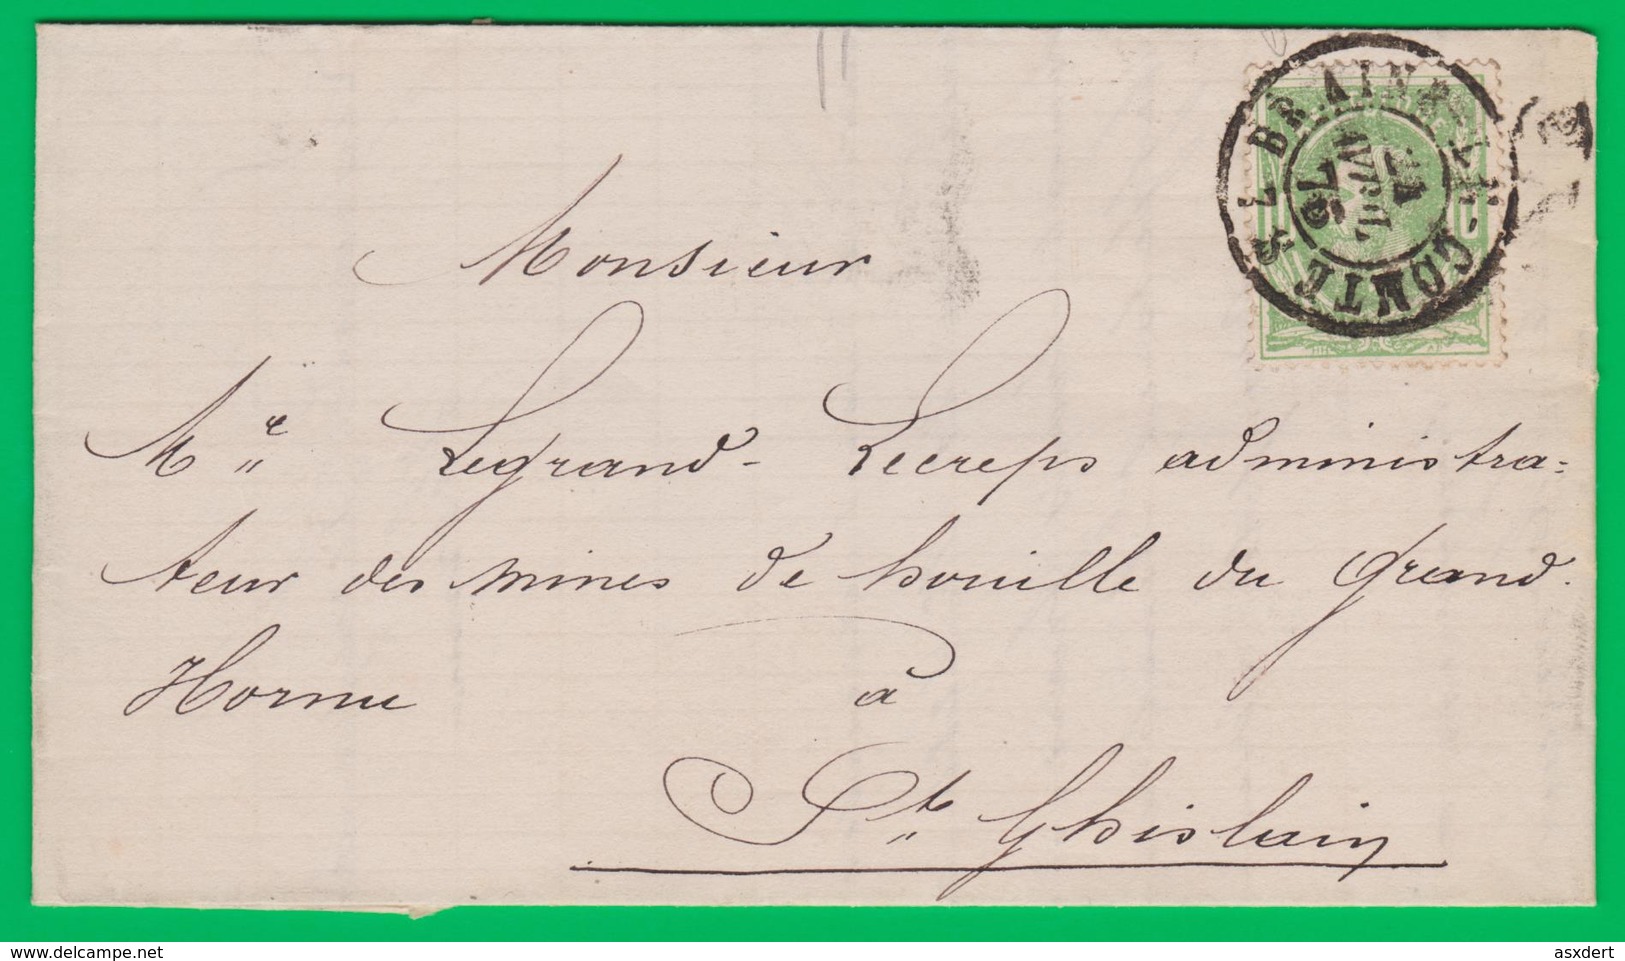 BRAINE-LE-COMTE
Monsieur
Mr Legrand-Lecreps administra=
teur des mines de houille du Grand-
Hornu à
St Ghislain
delcampe.net
asxdert